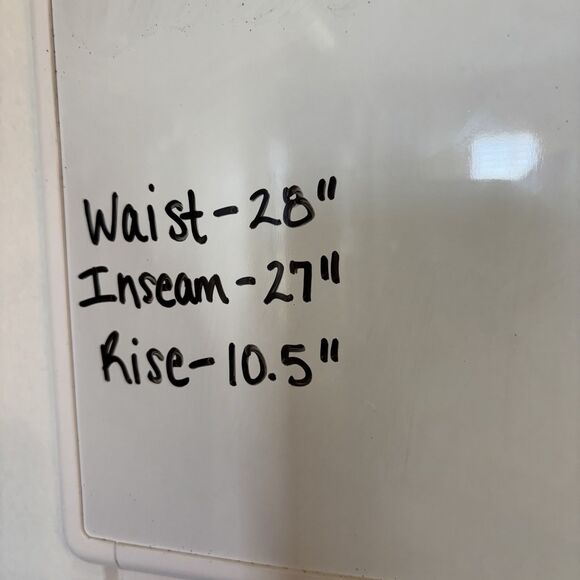 Waist - 28"
Inseam - 27"
Rise - 10.5"